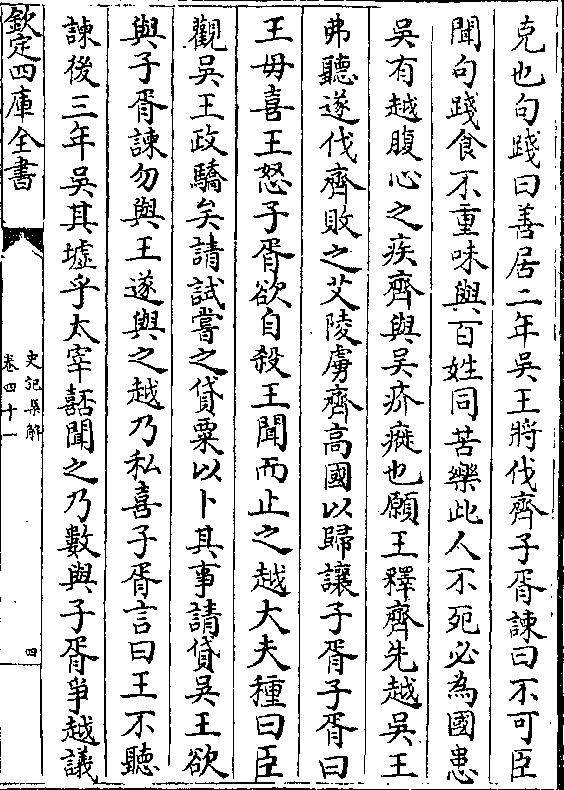 克也句踐曰善居二年吳王將伐齊子胥諫曰不可臣
聞句踐食不重味與百姓同苦樂此人不死必為國患
吳有越腹心之疾齊與吳疥癬也願王釋齊先越吳王
弗聽遂伐齊敗之艾陵虜齊高國以歸讓子胥子胥曰
王毋喜王怒子胥欲自殺王聞而止之越大夫種曰臣
觀吳王政驕矣請試嘗之貸粟以卜其事請貸吳王欲
與子胥諫勿與王遂與之越乃私喜子胥言曰王不聽
諫後三年吳其墟乎太宰嚭聞之乃數與子胥爭越議
欽定四庫全書
史記集解
卷四十一
四